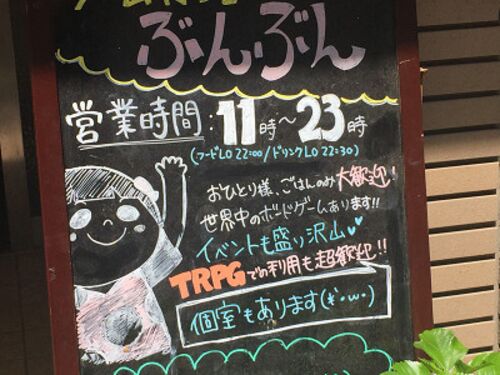 ぶんぶん
営業時間:11時~23時
(フードLO 22:00/ドリンクLO 22:30)
おひとり様、ごはんのみ大歓迎!
世界中のボードゲームあります!!
イベントも盛り沢山
TRPGでの利用も超歓迎!!
個室もあります(*・ω・)